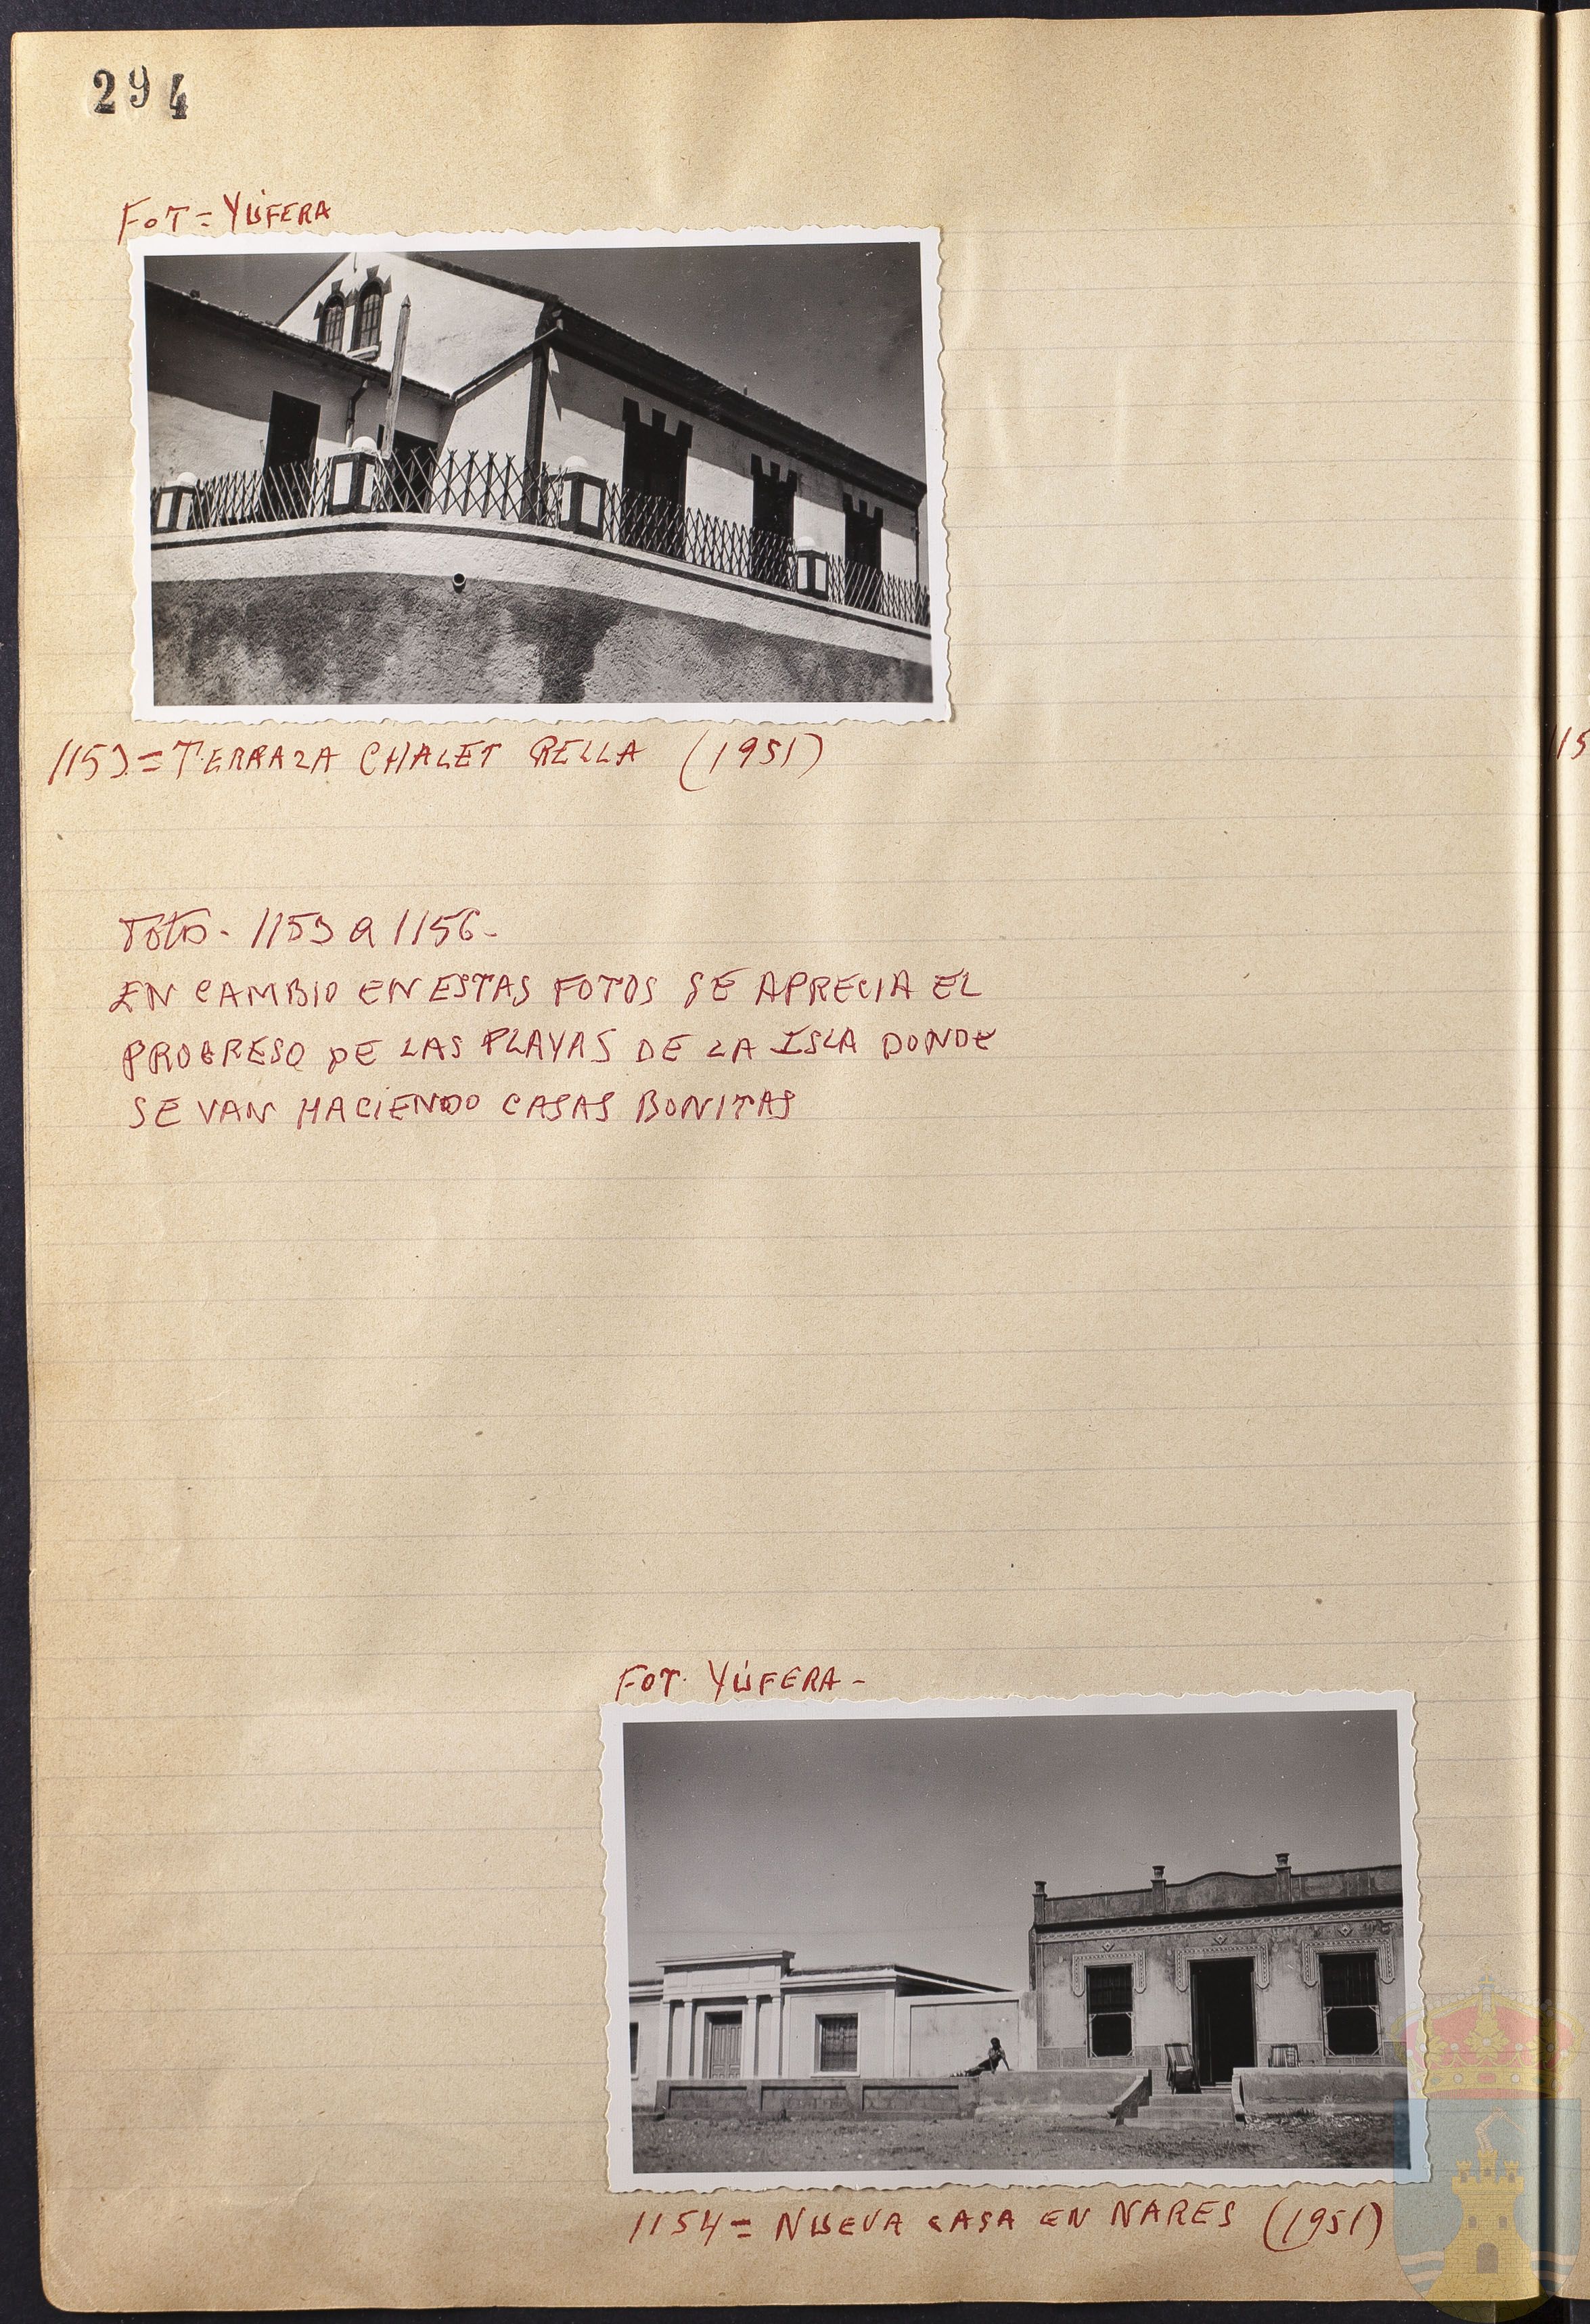 294
FOT = YÚFERA
1153 = TERRAZA CHALET RELLA (1951)
Fotos - 1153 a 1156 -
EN CAMBIO EN ESTAS FOTOS SE APRECIA EL
PROGRESO DE LAS PLAYAS DE LA ISLA DONDE
SE VAN HACIENDO CASAS BONITAS
FOT. YÚFERA -
1154 = NUEVA CASA EN NARES (1951)
115